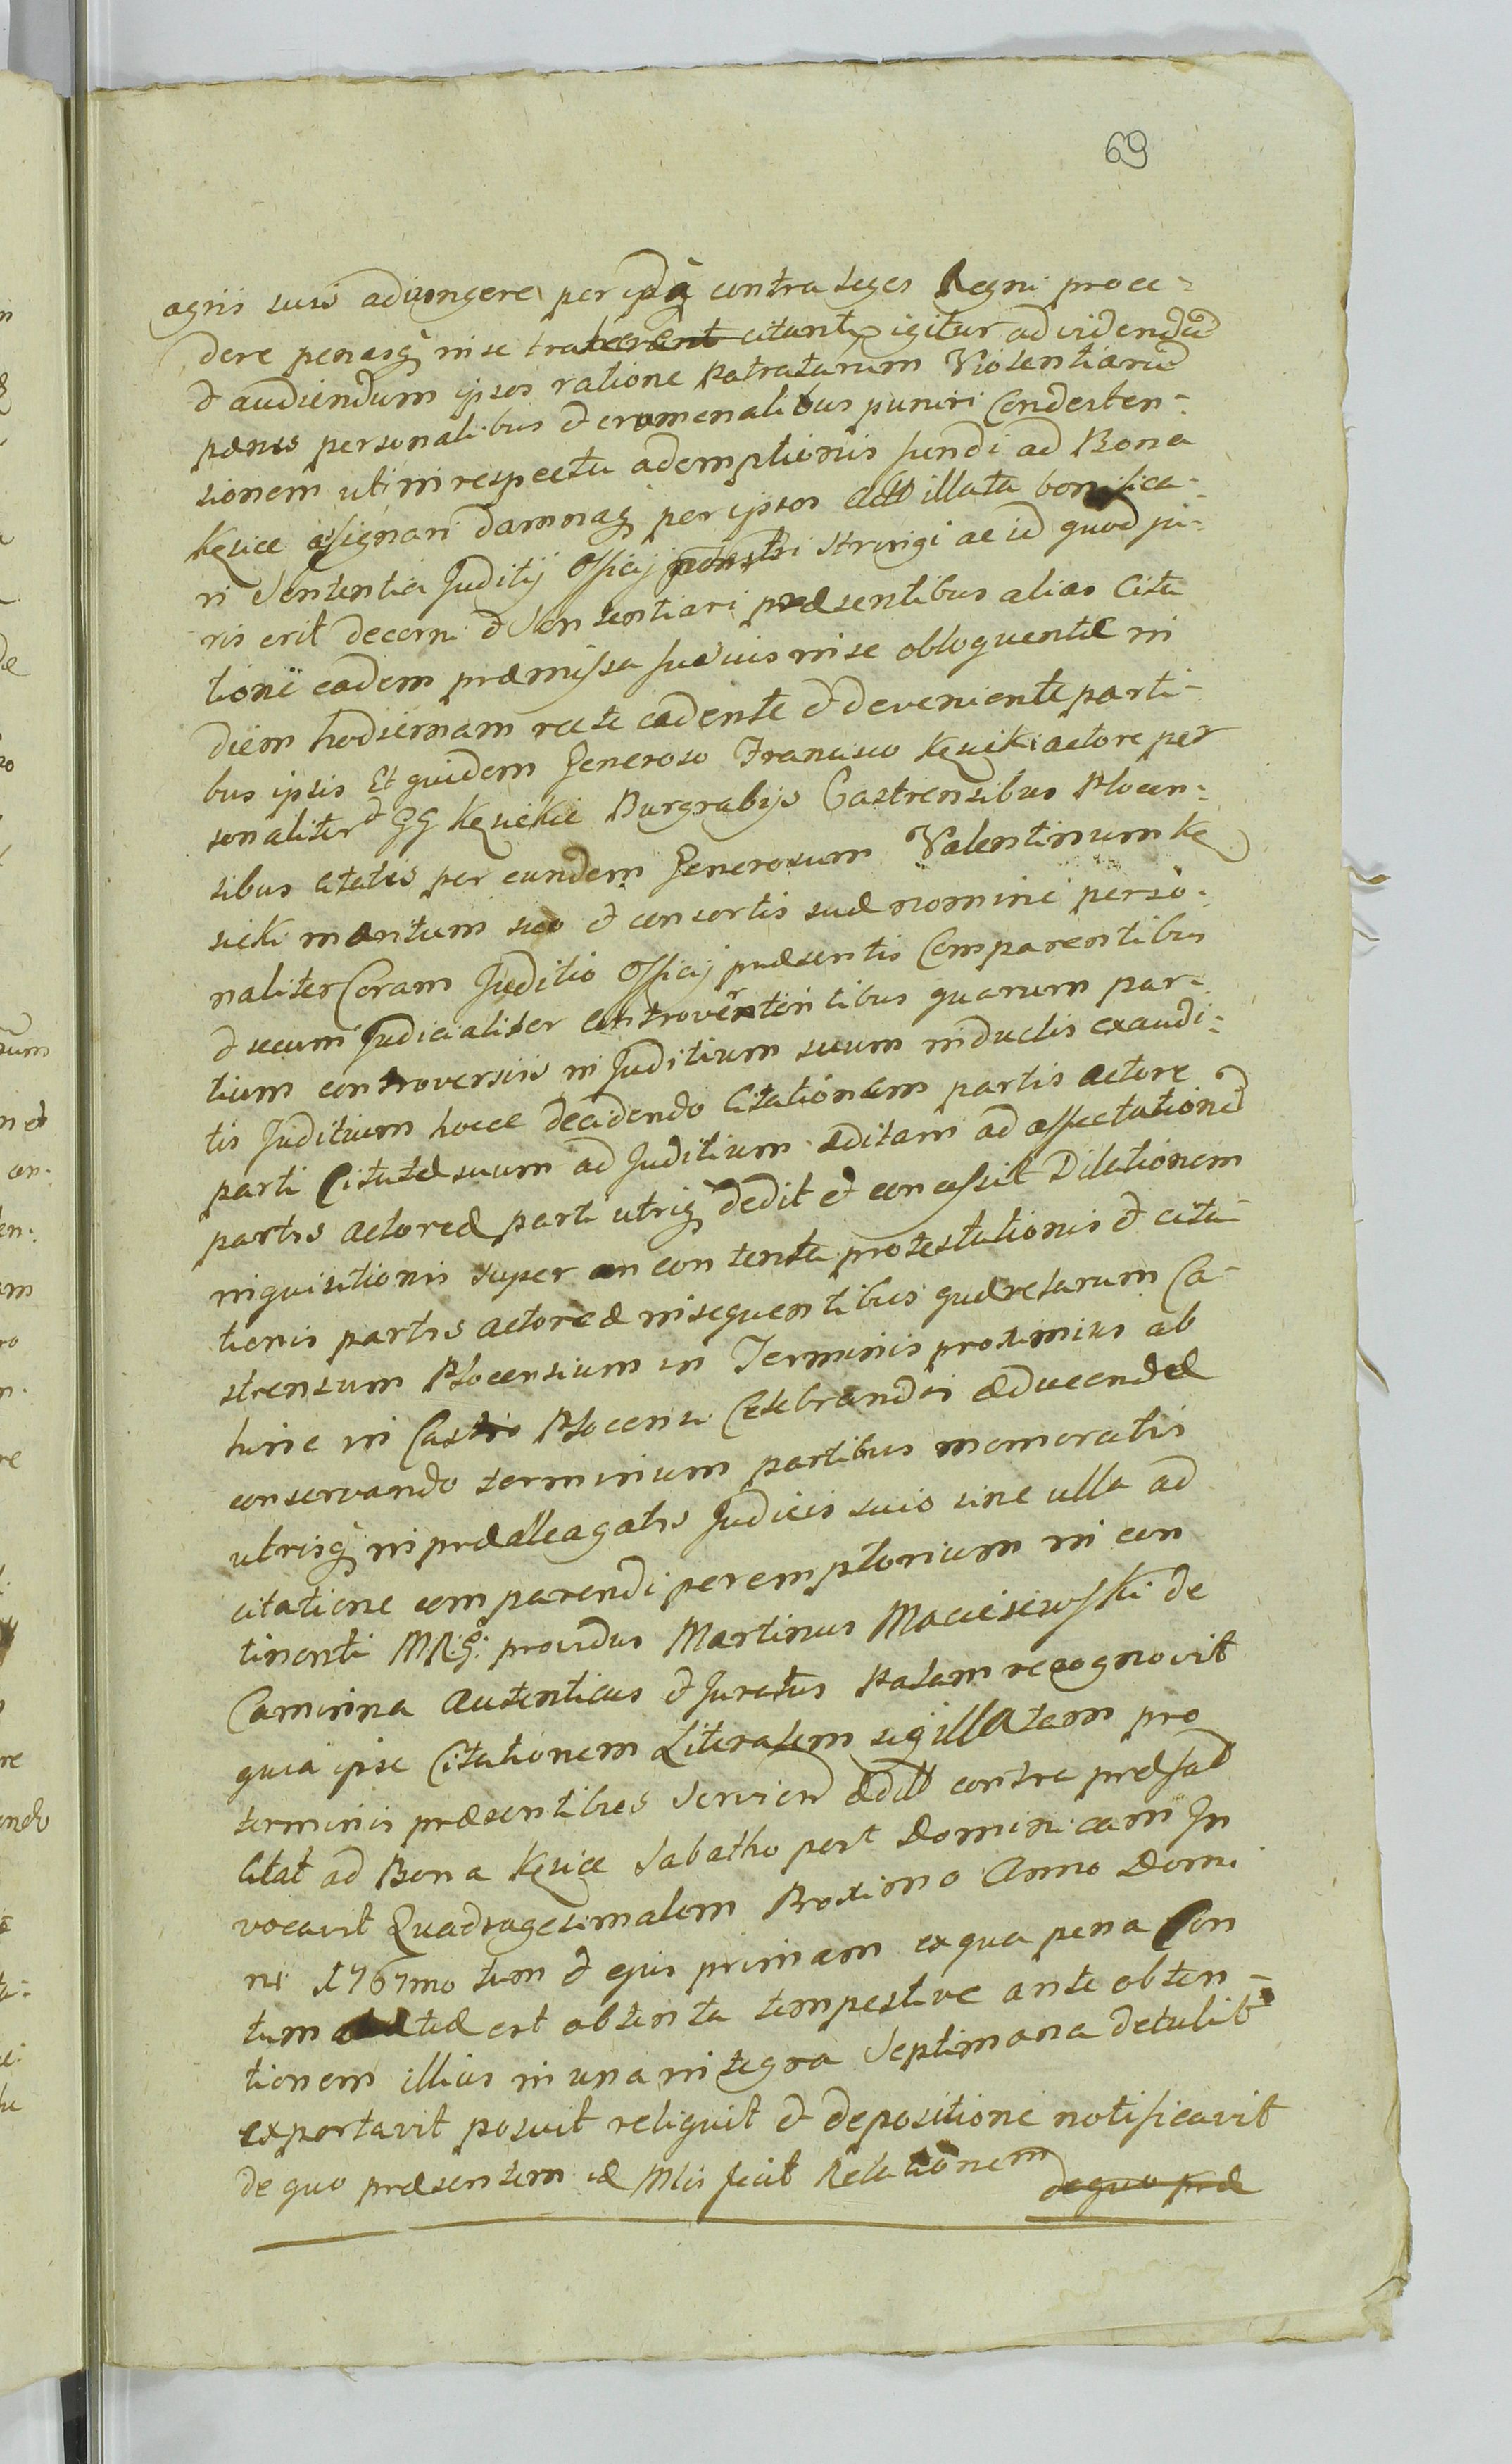 69
agris suis adiungere per idq contra leges Regni proce-
dere penasq in se traherent citantr igitur ad videndũ
et audiendum ipsos ratione Patratarum Violentiarũ
pænis personalibus et criminalibus puniri Condesten-
sionem uti in respectu ademptionis fundi ad Bona
Kęsice assignari damnaq per ipsos Act illata bonifica-
ri Sententia Juditij Officij stringi ac id quod ju-
ris erit decerni et Sententiari præsentibus alias Cita
tione eadem præmissa fusius in se obloquente in
diem hodiernam recte cadente et deveniente parti-
bus ipsis Et quidem Generoso Francisco Kęsicki actore per
sonaliter et GG Kęsickie Burgrabijs Castrensibus Plocen-
sibus citatis per eundem Generosum Valentinum Kę
sicki maritum suo et consortis suæ nomine perso-
naliter Coram Juditio Officij præsentis Comparentibus
et secum Judicialiter Controvertentibus quarum par-
tium controversiis in Juditium suum inductis exaudi-
tis Juditium hocce decidendo Citationem partis actoreæ
parti Citatæ suum ad Juditium æditam ad affectationẽ
partis actoreæ parti utriq dedit et concessit Dilationem
inquisitionis super contenta protestationis et cita-
tionis partis actoreæ in sequentibus querelarum Ca-
strensium Plocensium in Terminis proximius ab
hinc in Castro Plocensi Celebrandis æducendæ
conservando terminum partibus memoratis
utrisq in præallegatis Judiciis suis sine ulla ad
citatione comparendi peremptorium in con
tinenti MRq: providus Martinus Macieiewski de
Camnina Autenticus et Juratus Palam recognovit
quia ipse Citationem Literalem sigillatam pro
terminis præsentibus Servien ædit contra præfat
Citat ad Bona Kęsice Sabatho post Dominicam In
vocavit Quadragesimalem Proximo Anno Domi
ni 1767mo tum et ejus primam ex qua pena Con
tum est obtenta tempestive ante obten-
tionem illius in una integra Septimana detulit
exportavit posuit reliquit et depositione notificavit
de quo præsentem Mis fecit Relationem de quo præ